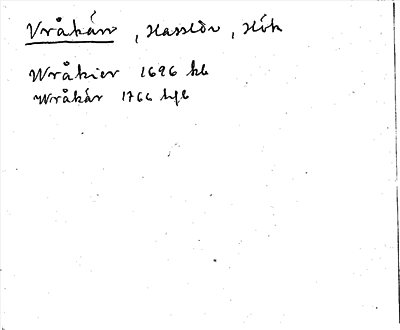 Vråkärr, Hasslöv, Hök
Wråkier 1696 kb
Wråkär 1766 hfl